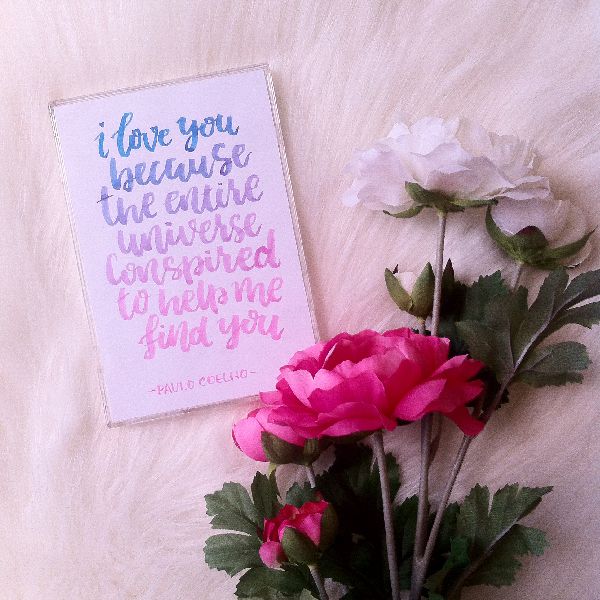 i love you
because
the entire
universe
conspired
to help me
find you
-PAULO COELHO-